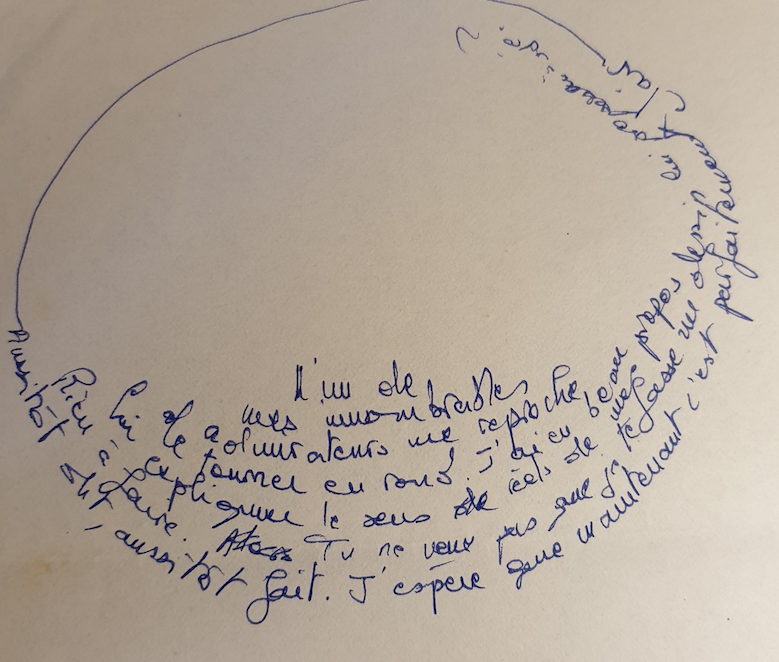 L'un de
mes innombrables
admirateurs me reproche
de tourner en rond. J'ai eu beau
lui expliquer le sens de mes propos
Rien à faire. Tu ne veux pas que je te fasse un dessin
Aussitôt dit, aussitôt fait. J'espère que maintenant c'est parfaitement
clair